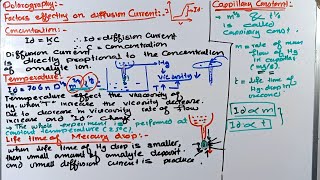 Polarography:
Factors effecting on diffusion Current:
Concentration:
Id = KC
Id = diffusion Current
Diffusion Current ∝ Concentration
is directly proportional to the Concentration
of analyte ion.
Temperature
Temperature effect the viscosity of
Hg. when "T" increase the viscosity decrease.
Due to decrease in viscosity rate of flow
increase and "Id" change
The whole experiment is performed at
constant temperature
Life time of Mercury drop:
when life time of Hg drop is smaller,
then small amount of analyte deposit
and small diffusion current is produce.
Capillary Constant:
called
Capillary Const.
m = rate of mass
flow of Hg
t = life time of
Hg drop in
Id ∝ m
Id ∝ t